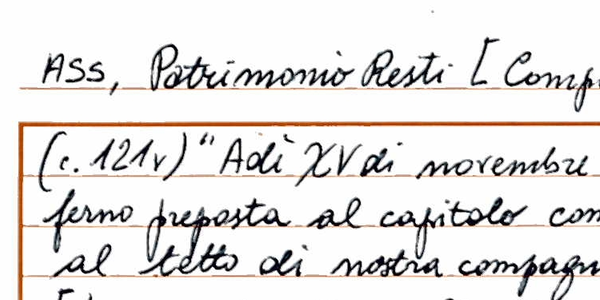 ASS, Patrimonio Resti [ Comp
(c. 121v) "Adì XV di novembre
ferno preposta al capitolo con
al tetto di nostra compagn